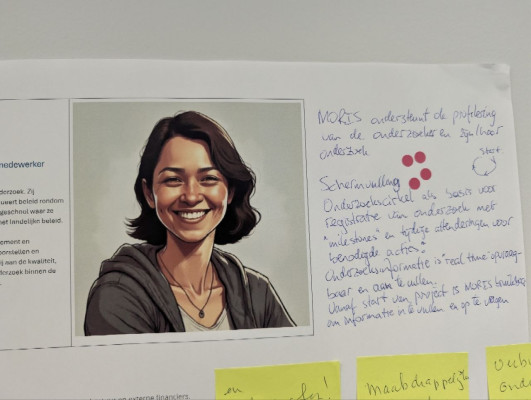 medewerker
derzoek. Zij
ueert beleid rondom
geschool waar ze
et landelijk beleid.
ement en
oorstellen en
ij aan de kwaliteit,
derzoek binnen de
en externe financiers.
MORIS ondersteunt de profilering
van de onderzoeker en zijn/haar
onderzoek
start
Schermvulling
Onderzoekscirkel als basis voor
registratie van onderzoek met
"milestones" en tijdige attenderingen voor
benodigde acties.
Onderzoeksinformatie is "real time" opvraag-
baar en aan te vullen.
Vanaf start van project is MORIS bruikbaar
om informatie in te vullen en op te vragen
en
Maatschappelijk